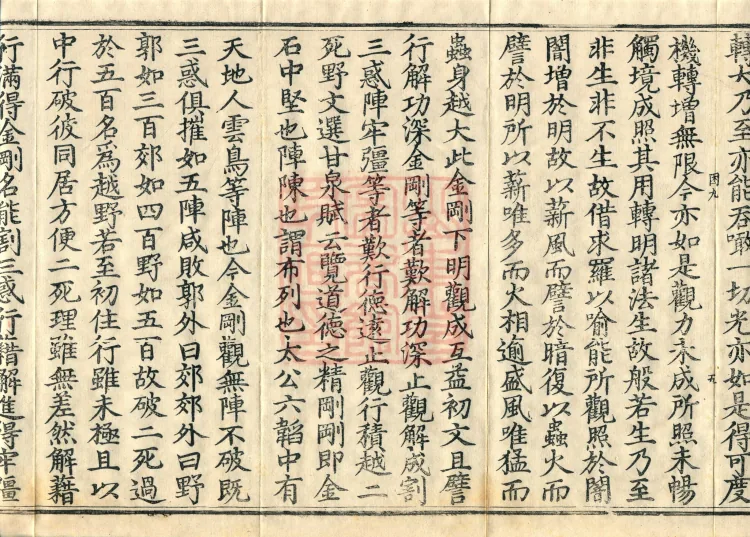 轉大乃至亦能吞噉一切光亦如是得可度
機轉增無限今亦如是觀力未成所照未暢
觸境成照其用轉明諸法生故般若生乃至
非生非不生故借求羅以喻能所觀照於闇
闇增於明故以薪風而譬於暗復以蟲火而
譬於明所以薪唯多而火相逾盛風唯猛而
蟲身越大此金剛下明觀成互益初文且譬
行解功深金剛等者歎解功深止觀解成割
三惑陣牢彊等者歎行德遠止觀行積越二
死野文選甘泉賦云覽道德之精剛剛即金
石中堅也陣陳也謂布列也太公六韜中有
天地人雲鳥等陣也今金剛觀無陣不破既
三惑俱摧如五陣咸敗郭外曰郊郊外曰野
郭如三百郊如四百野如五百故破二死過
於五百名爲越野若至初住行雖未極且以
中行破彼同居方便二死理雖無差然解藉
行滿得金剛名能割三惑行藉解進得牢彊